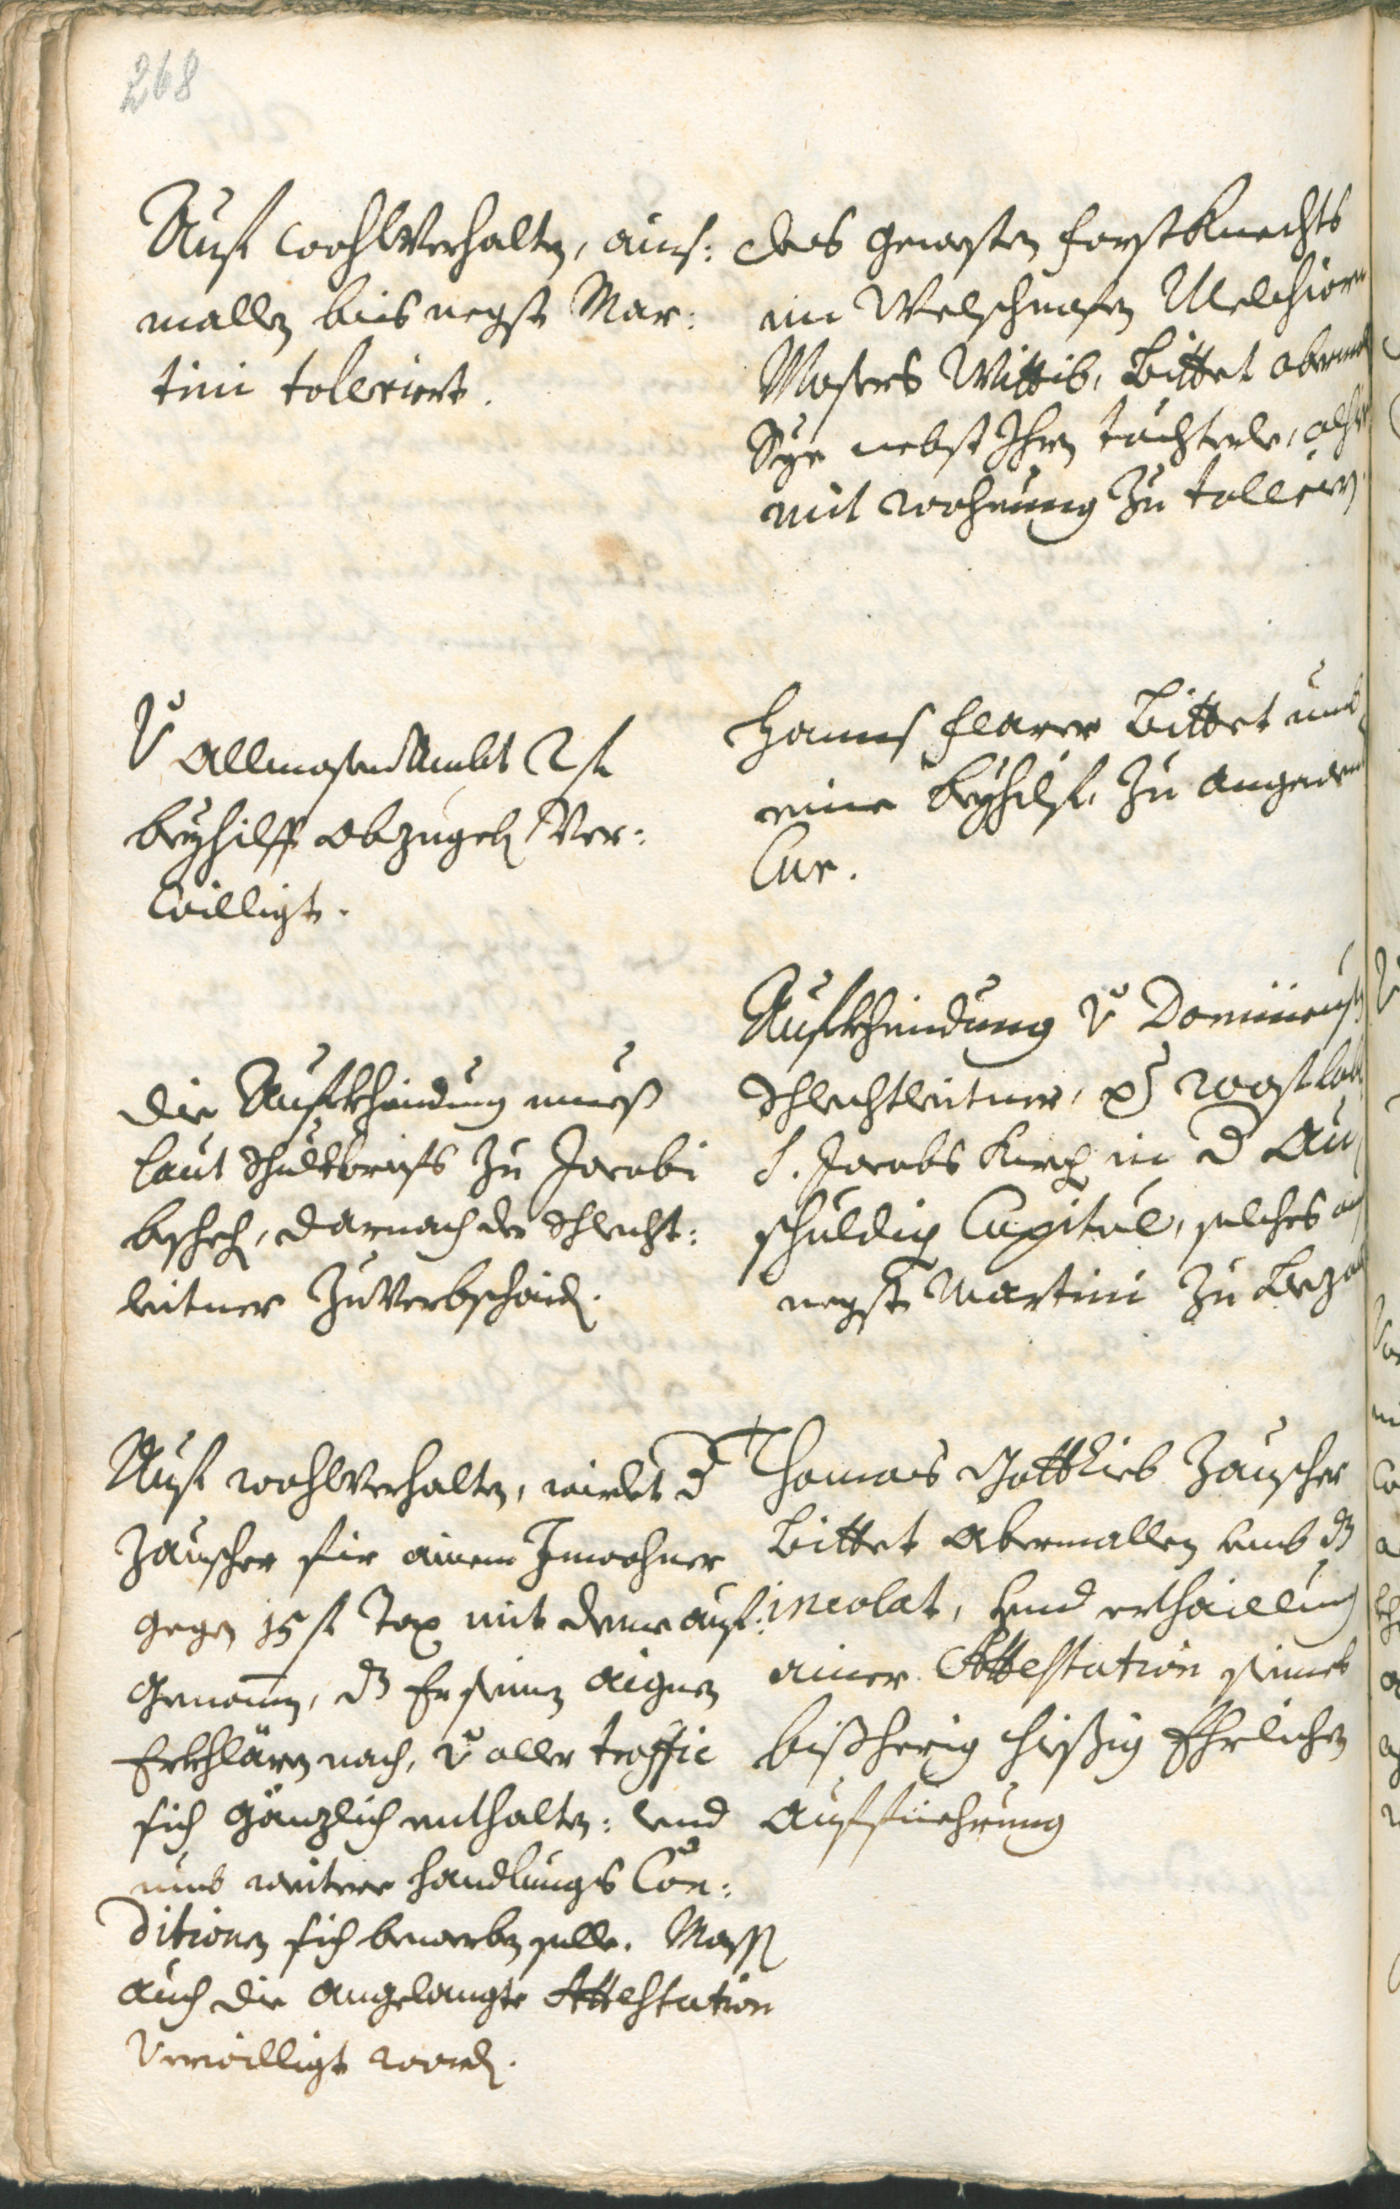 268
Auf wohlverhalten, ains:
mallen bis negst Mar:
tini tolleriert.
Des gewesten forstKnechts
im Welschnofen Melchiorn
Mosers Wittib, Bittet
Sye nebst Ihren töchterle,
mit wohnung zu tollerirn
V Allmosen Ambt 2 f
beyhilff abzugeben Ver:
williget.
Hanns flarer Bittet umb
eine beyhilf, zu
Cur.
Die Aufkhindung mues
laut Schuldbriefs zu Jacobi
beschehen, darnach der Schlecht:
leitner zu Verbschaiden.
Aufkhindung V Dominicus
Schlechtleitner,
S. Jacobs Kirch in d Au
schuldig Capital, solches
negst Martini zu
Auf wohlverhalten, wirdet d
Zauscher für ainen Inwohner
gegen 15 f Tax mit deme auf:
genomen, dz Er seinen aignen
Erkhlären nach, V aller traffic
sich gänzlich enthalten: und
umb weitere handlungs Con:
ditionen sich bewerben solle. Massen
auch die angelangte Attestation
Verwilligt worden.
Thomas Gottlieb Zauscher
Bittet abermallen umb dz
incolat, und erthaillung
ainer Attestation seines
bishherig hiesig Ehrlichen
aufführung